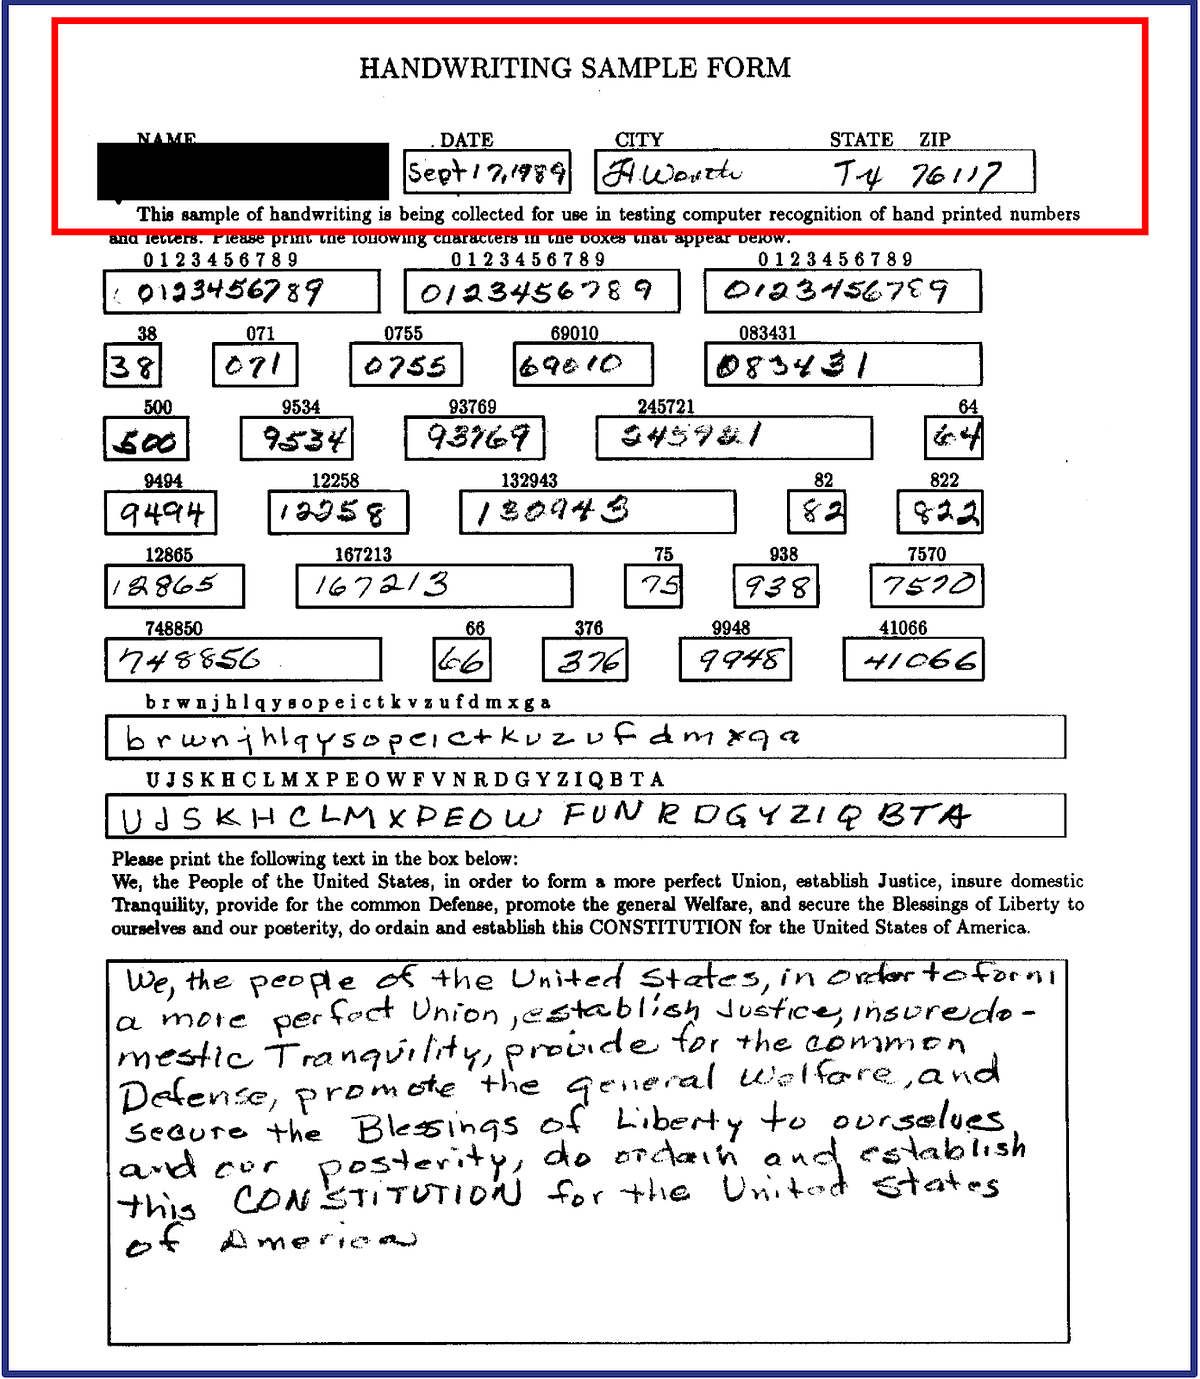 HANDWRITING SAMPLE FORM
NAME DATE CITY STATE ZIP
Sept 17, 1989 Ft Worth Tx 76117
This sample of handwriting is being collected for use in testing computer recognition of hand printed numbers
and letters. Please print the following characters in the boxes that appear below.
0 1 2 3 4 5 6 7 8 9 0 1 2 3 4 5 6 7 8 9 0 1 2 3 4 5 6 7 8 9
0123456789 0123456789 0123456789
38 071 0755 69010 083431
38 071 0755 69010 083431
500 9534 93769 245721 64
500 9534 93769 245721 64
9494 12258 132943 82 822
9494 12258 130943 82 822
12865 167213 75 938 7570
12865 167213 75 938 7570
748850 66 376 9948 41066
748850 66 376 9948 41066
b r w n j h l q y s o p e i c t k v z u f d m x g a
b r w n j h l q y s o p e i c t k v z u f d m x g a
U J S K H C L M X P E O W F V N R D G Y Z I Q B T A
U J S K H C L M X P E O W F V N R D G Y Z I Q B T A
Please print the following text in the box below:
We, the People of the United States, in order to form a more perfect Union, establish Justice, insure domestic
Tranquility, provide for the common Defense, promote the general Welfare, and secure the Blessings of Liberty to
ourselves and our posterity, do ordain and establish this CONSTITUTION for the United States of America.
We, the people of the United States, in order to form
a more perfect Union, establish Justice, insure do-
mestic Tranquility, provide for the common
Defense, promote the general Welfare, and
secure the Blessings of Liberty to ourselves
and our posterity, do ordain and establish
this CONSTITUTION for the United States
of America